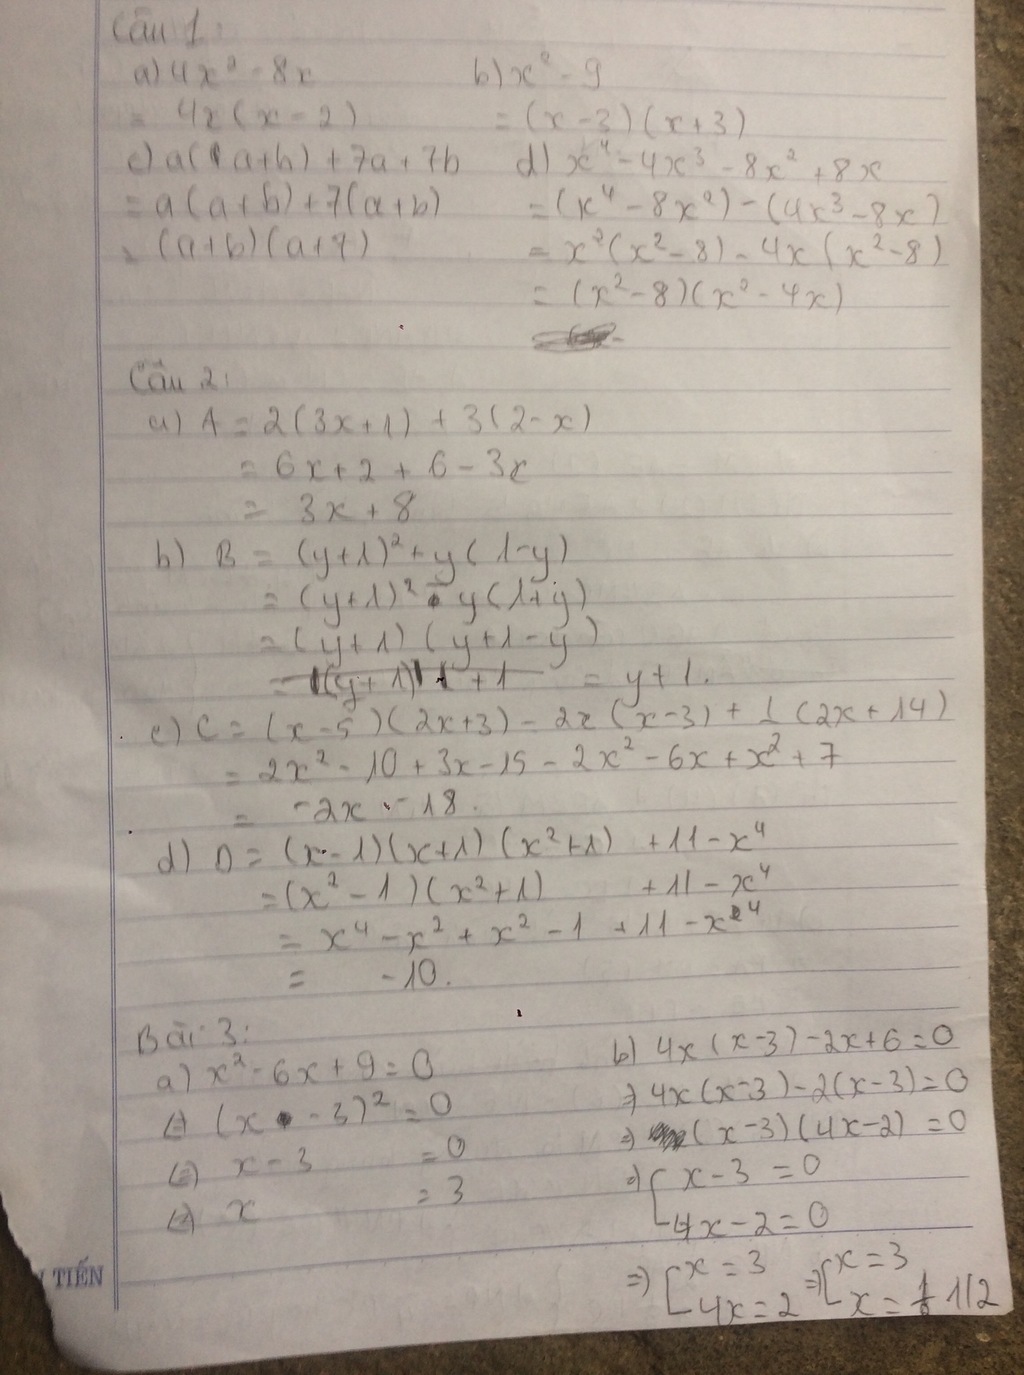 Câu 1:
a) 4x² - 8x
= 4x(x - 2)
b) x² - 9
= (x - 3)(x + 3)
c) a(a+b) + 7a + 7b
= a(a+b) + 7(a+b)
= (a+b)(a+7)
d) x⁴ - 4x³ - 8x² + 8x
= (x⁴ - 8x²) - (4x³ - 8x)
= x²(x² - 8) - 4x(x² - 8)
= (x² - 8)(x² - 4x)
Câu 2:
a) A = 2(3x+1) + 3(2-x)
= 6x + 2 + 6 - 3x
= 3x + 8
b) B = (y+1)² + y(1-y)
= (y+1)² - y(1+y)
= (y+1)(y+1-y)
= y+1.
c) C = (x-5)(2x+3) - 2x(x-3) + 1(2x+14)
= 2x² - 10 + 3x - 15 - 2x² - 6x + x² + 7
= -2x - 18.
d) D = (x-1)(x+1)(x²+1) + 11 - x⁴
= (x² - 1)(x²+1) + 11 - x⁴
= x⁴ - x² + x² - 1 + 11 - x⁴
= -10.
Bài 3:
a) x² - 6x + 9 = 0
(=) (x - 3)² = 0
(=) x - 3 = 0
(=) x = 3
b) 4x(x-3) - 2x + 6 = 0
=) 4x(x-3) - 2(x-3) = 0
=) (x-3)(4x-2) = 0
=) [x - 3 = 0
4x - 2 = 0
=) [x = 3 =) [x = 3
4x = 2 x = 1/2
TIẾN